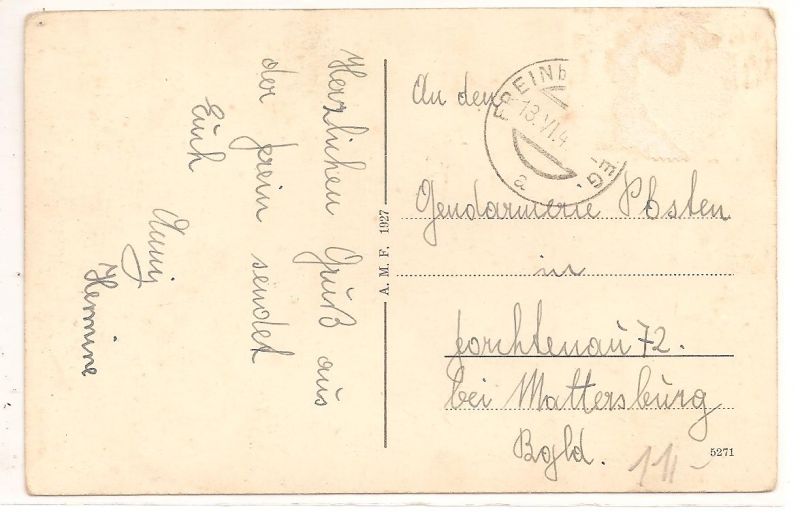 Herzlichen Gruß aus
der frein sendet
Euch
Anni
Hermine
A. M. F. 1927
An den
Gendarmerie Posten
in
forchtenau 72.
bei Mattersburg
Bgld.
5271
FREINb
EG
13.VI.4
a
11-